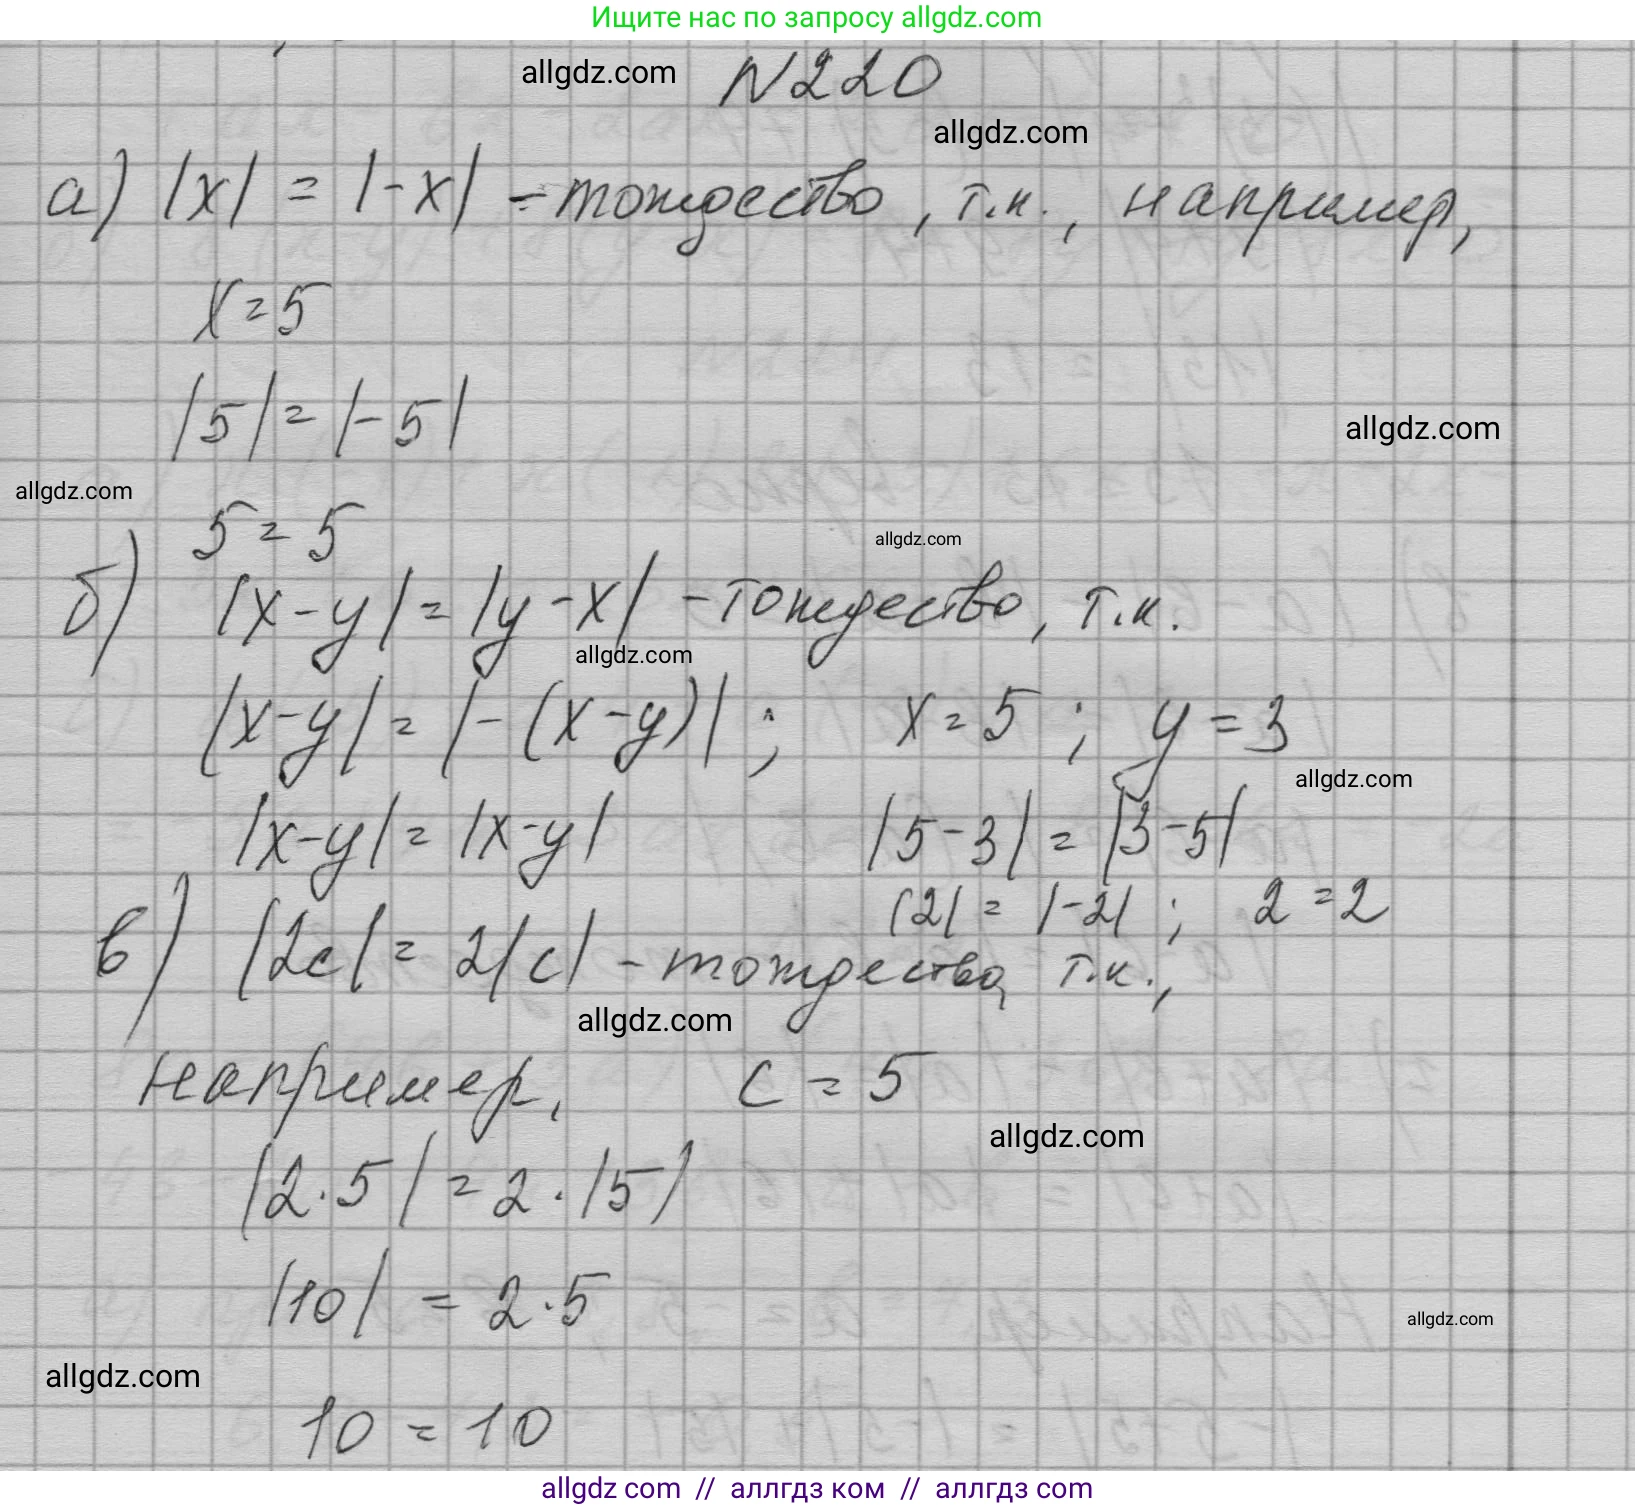 Ищите нас по запросу allgdz.com
allgdz.com
N220
allgdz.com
а) |x| = |-x| - тождество, т.к., например,
x=5
|5| = |-5|
allgdz.com
allgdz.com
5 = 5
allgdz.com
б) |x-y| = |y-x| - тождество, т.к.
allgdz.com
|x-y| = |-(x-y)|; x=5; y=3
allgdz.com
|x-y| = |x-y| |5-3| = |3-5|
|2| = |-2|; 2=2
в) |2c| = 2|c| - тождество, т.к.,
allgdz.com
например, c = 5
allgdz.com
|2·5| = 2·|5|
|10| = 2·5
allgdz.com
allgdz.com
10 = 10
allgdz com // аллгдз ком // аллгдз com